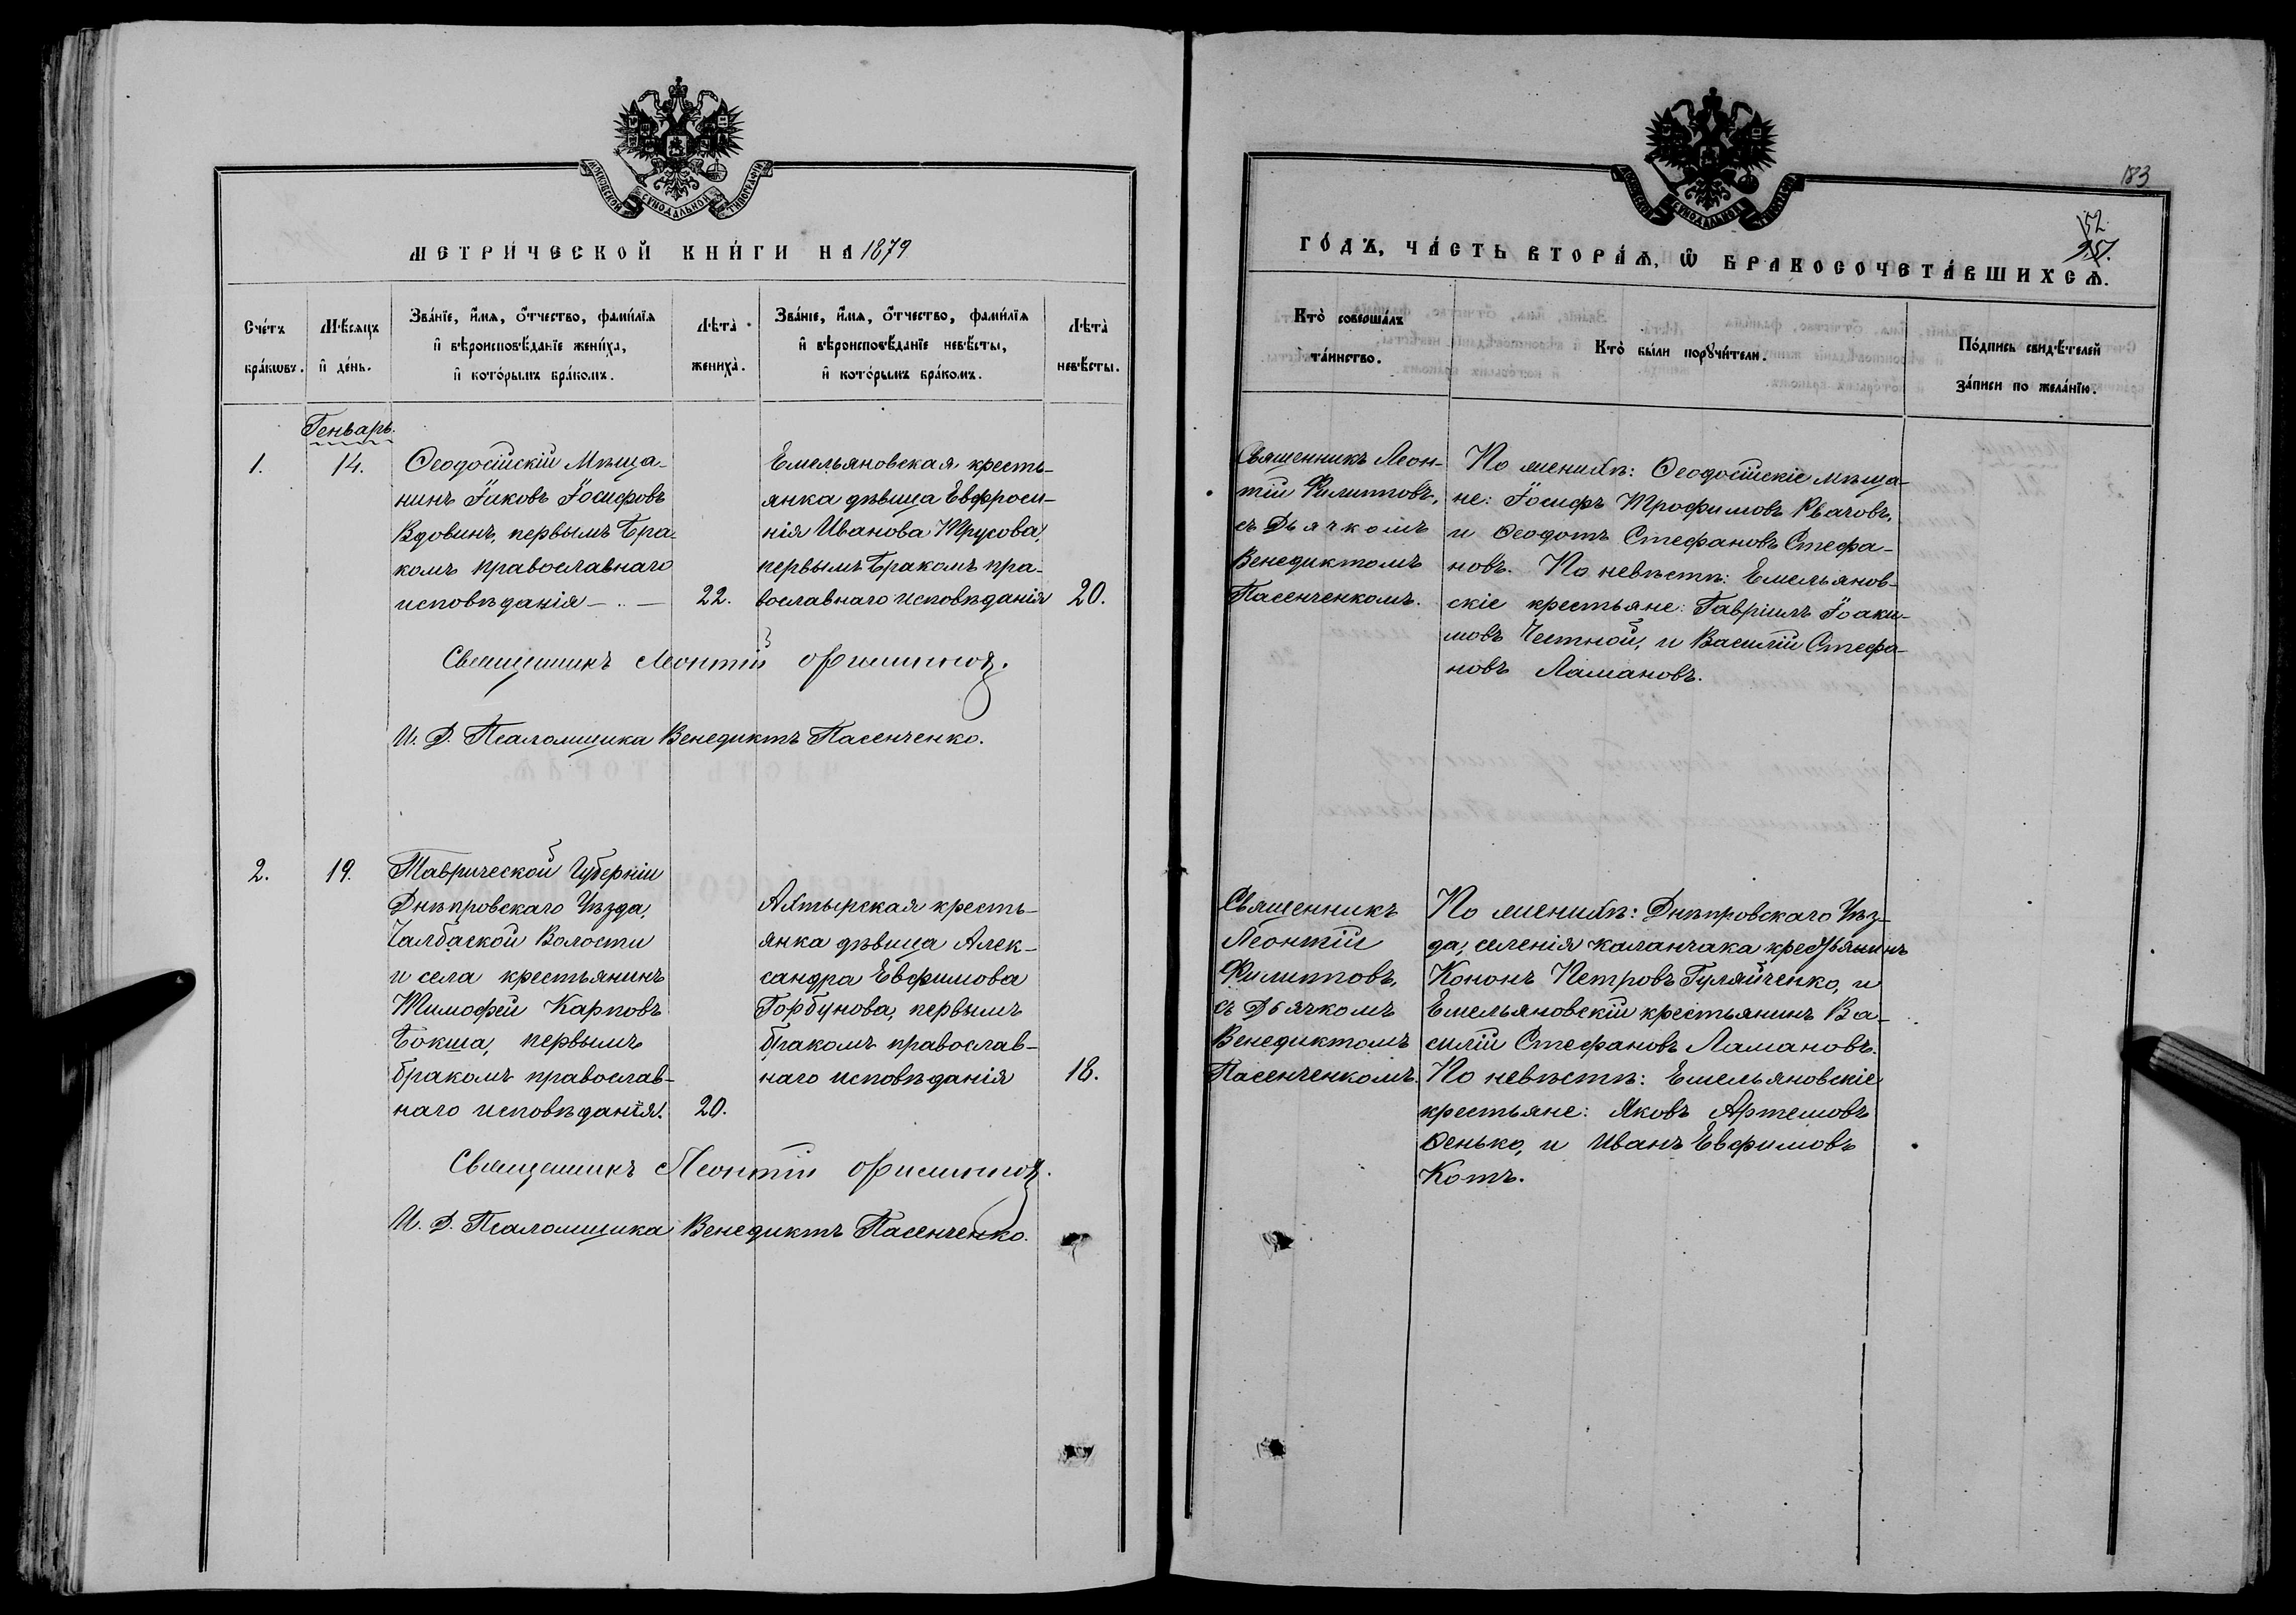 МОСКОВСКОЙ СѴНОДАЛЬНОЙ ТИПОГРАФІИ
МЕТРИ́ЧЕСКОЙ КНИ́ГИ НА 1879
Сче́тъ бра́кѡвъ.
Мѣ́сяцъ и҆ де́нь.
Зва́нїе, и҆́мя, ѻ҆́тчество, фами́лїя
и҆ вѣроисповѣ́данїе жениха̀,
и҆ кото́рымъ бра́комъ.
Лѣта̀ жениха̀.
Зва́нїе, и҆́мя, ѻ҆́тчество, фами́лїя
и҆ вѣроисповѣ́данїе невѣ́сты,
и҆ кото́рымъ бра́комъ.
Лѣта̀ невѣ́сты.
Генварь.
1.
14.
Ѳеодосійскій Мѣща-
нинъ Іаковъ Іосифовъ
Вдовинъ, первымъ бра-
комъ православнаго
исповѣданія
22.
Емельяновская кресть-
янка дѣвица Евфроси-
нія Иванова Трусова,
первымъ бракомъ пра-
вославнаго исповѣданія
20.
Священникъ Леонтій Филипповъ.
И. Д. Псаломщика Венедиктъ Пасенченко.
2.
19.
Таврической Губерніи
Днѣпровскаго Уѣзда,
Чалбаской Волости
и села крестьянинъ
Тимофей Карповъ
Бокша, первымъ
бракомъ православ-
наго исповѣданія.
20.
Ахтырская кресть-
янка дѣвица Алек-
сандра Евфимова
Горбунова, первымъ
бракомъ православ-
наго исповѣданія
18.
Священникъ Леонтій Филипповъ.
И. Д. Псаломщика Венедиктъ Пасенченко.
183
52
МОСКОВСКОЙ СѴНОДАЛЬНОЙ ТИПОГРАФІИ
ГО́ДЪ, ЧА́СТЬ ВТОРА́Ѧ, Ѡ҆ БРАКОСОЧЕТА́ВШИХСѦ.
Кто̀ соверша́лъ та́инство.
Кто̀ бы́ли порꙋчи́тели.
По́дпись свидѣ́телей
за́писи по жела́нїю.
Священникъ Леон-
тій Филипповъ,
съ Дьячкомъ
Венедиктомъ
Пасенченкомъ.
По женихѣ: Ѳеодосійскіе мѣща-
не: Іосифъ Трофимовъ Рвачовъ,
и Ѳеодотъ Стефановъ Стефа-
новъ. По невѣстѣ: Емельянов-
скіе крестьяне: Гавріилъ Іоаки-
мовъ Честной, и Василій Стефа-
новъ Ламановъ.
Священникъ
Леонтій
Филипповъ,
съ Дьячкомъ
Венедиктомъ
Пасенченкомъ.
По женихѣ: Днѣпровскаго Уѣз-
да, селенія Каланчака крестьянинъ
Кононъ Петровъ Гуляйченко, и
Емельяновскій крестьянинъ Ва-
силій Стефановъ Ламановъ.
По невѣстѣ: Емельяновскіе
крестьяне: Яковъ Артемовъ
Ѳенько, и Иванъ Евфимовъ
Котъ.